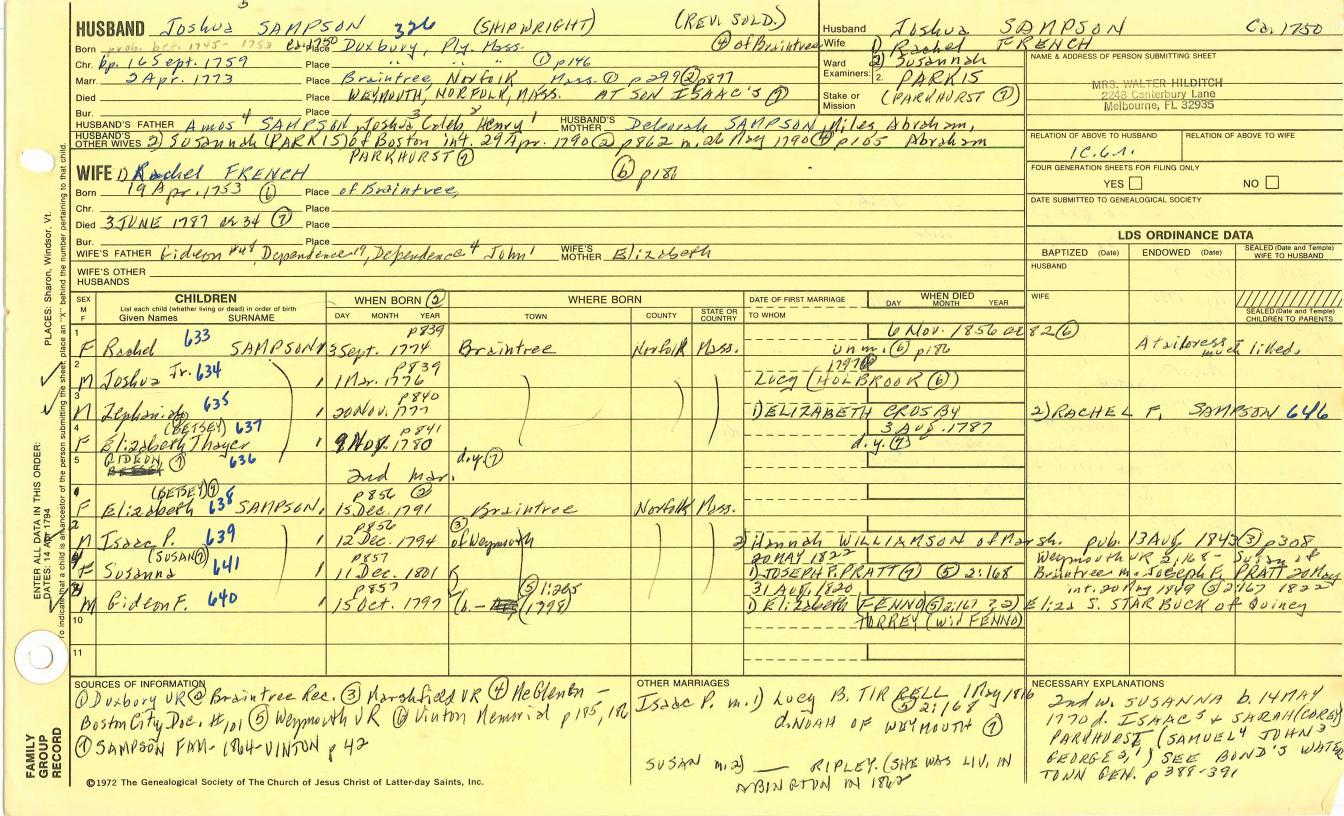 HUSBAND Joshua SAMPSON 326 (SHIPWRIGHT) (REV. SOLD.)
Husband Joshua SAMPSON Ca. 1750
Born prob. bet. 1745-1753 ca 1750 Place Duxbury, Ply. Mass. ④ of Braintree
Wife 1) Rachel FRENCH
2) Susannah
Chr. bp. 16 Sept. 1759 Place " " " ① p146
Ward
Examiners: 1.
2. PARKIS
Marr. 2 Apr. 1773 Place Braintree, Norfolk Mass. ① p299 ② p877
Died Place WEYMOUTH, NORFOLK, MASS. AT SON ISAAC'S ⑦
Stake or
Mission (PARKHURST ⑦)
Bur. Place
NAME & ADDRESS OF PERSON SUBMITTING SHEET
MRS. WALTER HILDITCH
2248 Canterbury Lane
Melbourne, FL 32935
HUSBAND'S FATHER Amos⁴ SAMPSON, Joshua³ Caleb² Henry¹ HUSBAND'S MOTHER Deborah SAMPSON, Miles Abraham,
HUSBAND'S OTHER WIVES 2) Susannah (PARKIS) of Boston int. 29 Apr. 1790 ② p862 m. 26 May 1790 ④ p105 Abraham
PARKHURST ⑦
RELATION OF ABOVE TO HUSBAND
RELATION OF ABOVE TO WIFE
FOUR GENERATION SHEETS FOR FILING ONLY
YES NO
DATE SUBMITTED TO GENEALOGICAL SOCIETY
WIFE 1) Rachel FRENCH ⑥ p186
Born 19 Apr. 1753 ⑥ Place of Braintree,
Chr. Place
Died 3 JUNE 1787 ae 34 ⑦ Place
Bur. Place
WIFE'S FATHER Gideon, Dependence, Dependence John¹ WIFE'S MOTHER Elizabeth
WIFE'S OTHER HUSBANDS
LDS ORDINANCE DATA
BAPTIZED (Date) ENDOWED (Date) SEALED (Date and Temple) WIFE TO HUSBAND
HUSBAND
WIFE
SEALED (Date and Temple) CHILDREN TO PARENTS
SEX M F
CHILDREN
List each child (whether living or dead) in order of birth
Given Names SURNAME
WHEN BORN ②
DAY MONTH YEAR
WHERE BORN
TOWN COUNTY STATE OR COUNTRY
DATE OF FIRST MARRIAGE
TO WHOM
WHEN DIED
DAY MONTH YEAR
1 p839 6 Nov. 1856 ae 82 ⑥
F Rachel 633 SAMPSON 13 Sept. 1774 Braintree Norfolk Mass. unm. ⑥ p186 A tailoress much liked.
2 p839 1797
M Joshua Jr. 634 1 Mar. 1776 Lucy (HOLBROOK ⑥)
3 p840
M Zephaniah 635 20 Nov. 1777 1) ELIZABETH CROSBY 2) RACHEL F. SAMPSON 646
4 (BETSEY) 637 p841 3 AUG. 1787
F Elizabeth Thayer 9 Nov. 1780 d.y. ⑦
5 GIDEON ⑦ 636 d.y. ⑦
2nd mar.
(BETSEY) ⑦ p856 ②
F Elizabeth 638 SAMPSON, 15 Dec. 1791 Braintree Norfolk Mass.
p856 ③
M Isaac P. 639 12 Dec. 1794 of Weymouth 2) Hannah WILLIAMSON of Marsh. pub. 13 Aug. 1843 ③ p308
(SUSAN ⑦) p857 20 MAY 1822 Weymouth VR 2:168 - Susan of
F Susanna 641 11 Dec. 1801 1) JOSEPH P. PRATT ⑦ ⑤ 2:168 Braintree m. Joseph P. PRATT 20 May
p857 ⑤ 1:265 31 AUG. 1820 int. 20 May 1849 ⑤ 2:167 1822
M Gideon F. 640 15 Oct. 1797 (1798) 1) Elizabeth (FENNO ⑤ 2:167 ? 2) Eliza S. STARBUCK of Quincy
10 TORREY (wid FENNO)
11
SOURCES OF INFORMATION
① Duxbury VR ② Braintree Rec. ③ Marshfield VR ④ McGlenen -
Boston City Doc. #101 ⑤ Weymouth VR ⑥ Vinton Memorial p185, 186
⑦ SAMPSON FAM - 1864 - VINTON p 42
OTHER MARRIAGES
Isaac P. m. 1) Lucy B. TIRRELL 1 May 1816
⑤ 2:168
d. NOAH OF WEYMOUTH ⑦
SUSAN m. 2) ___ RIPLEY. (SHE WAS LIV. IN
ABINGTON IN 1862
NECESSARY EXPLANATIONS
2nd w. SUSANNA b. 14 MAY
1770 d. ISAAC⁵ & SARAH (COREY)
PARKHURST (SAMUEL⁴ JOHN³
GEORGE²,¹) SEE BOND'S WATER
TOWN GEN. p 388-391
©1972 The Genealogical Society of The Church of Jesus Christ of Latter-day Saints, Inc.
FAMILY GROUP RECORD
ENTER ALL DATA IN THIS ORDER:
DATES: 14 APR 1794
PLACES: Sharon, Windsor, Vt.
To indicate that a child is an ancestor of the person submitting the sheet, place an "X" behind the number pertaining to that child.